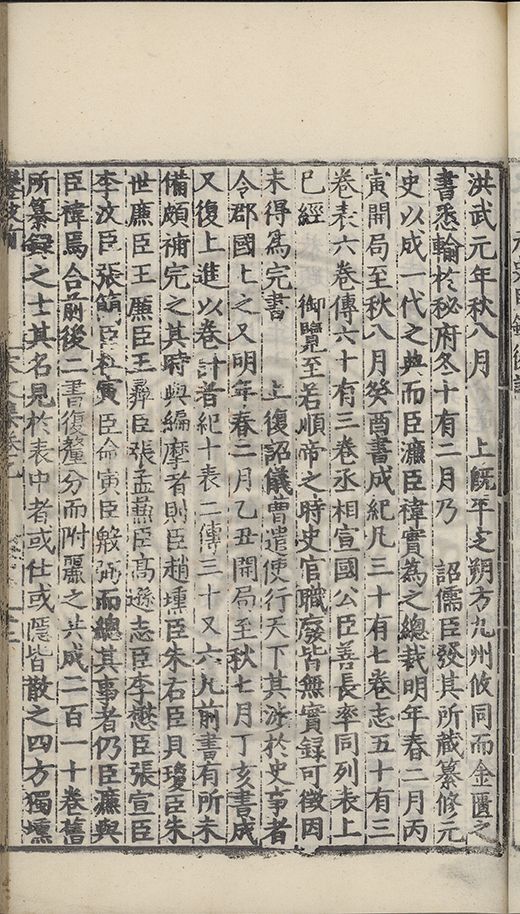 洪武元年秋八月　上旣平定朔方九州攸同而金匱之
書悉輸於秘府冬十有二月乃　詔儒臣發其所藏纂修元
史以成一代之典而臣濂臣禕實爲之總裁明年春二月丙
寅開局至秋八月癸酉書成紀凡三十有七卷志五十有三
卷表六卷傳六十有三卷丞相宣國公臣善長率同列表上
已經　御覽至若順帝之時史官職廢皆無實録可徵因
未得爲完書　上復詔儀曹遣使行天下其涉於史事者
令郡國上之又明年春二月乙丑開局至秋七月丁亥書成
又復上進以卷計者紀十表二傳三十又六凡前書有所未
備頗補完之其時與編摩者則臣趙壎臣朱右臣貝瓊臣朱
世廉臣王廉臣王彝臣張孟蒹臣高遜志臣李懋臣張宣臣
李汶臣張簡臣杜寅臣俞寅臣殷弼而總其事者仍臣濂與
臣禕焉合前後二書復釐分而附麗之共成二百一十卷舊
所纂録之士其名見於表中者或仕或隱皆散之四方獨壎